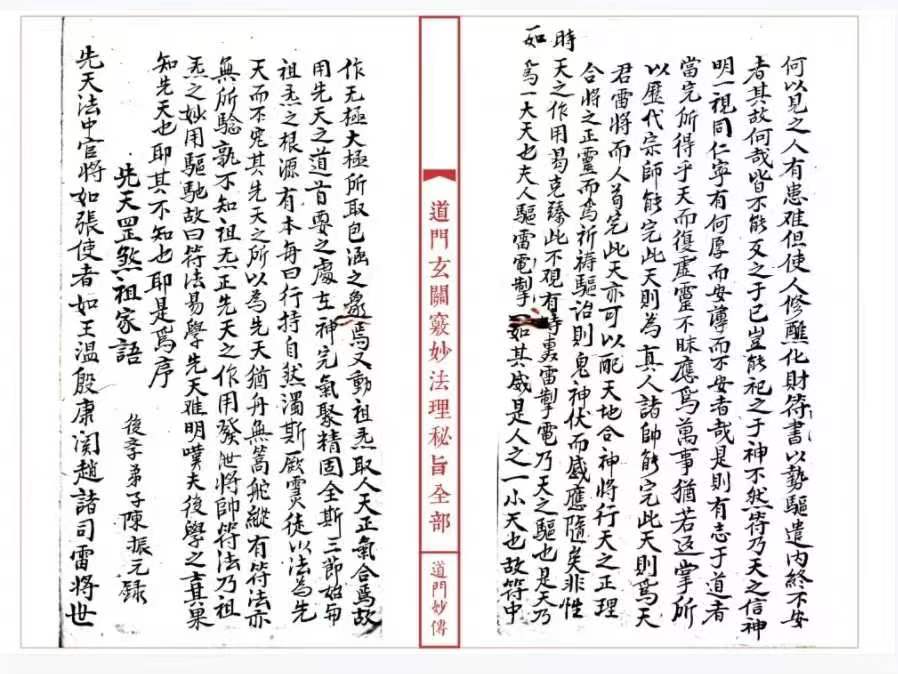 何以見之人有患难但使人修醮化財符書以勢驅遣内終不安
者其故何哉皆不能反之于已豈能祀之于神不然符乃天之信神
明一視同仁寧有何厚而安薄而不安者哉是則有志于道者
當完所得乎天而復虚灵不昧應爲萬事猶若返掌所
以歷代宗師能完此天則為真人諸帥能完此天則爲天
君雷將而人苟完此天亦可以配天地合神將行天之正理
合將之正靈而爲祈禱驅治則鬼神伏而感應隨矣非性
天之作用曷克臻此不覌有時裏雷掣電乃天之驅也是天乃
爲一大天也夫人驅雷電掣如其威是人之一小天也故符中
時
如
道門玄關竅妙法理秘旨全部
道門妙傳
作无極大極所取包涵之象焉又動祖炁取人天正氣合爲故
用先天之道首要之處在神完氣聚精固全斯三節始爲
祖炁之根源有本每曰行持自然濁斯厥灵徒以法為先
天而不究其先天之所以為先天猶舟無篙舵縱有符法亦
無所驗孰不知祖炁正先天之作用發泄將帥符法乃祖
炁之妙用驅馳故曰符法易學先天难明嘆夫後學之真果
知先天也耶其不知也耶是爲序
後孝弟子陳振元録
先天罡煞祖家語
先天法中官將如張使者如王温殷康関趙諸司雷將世